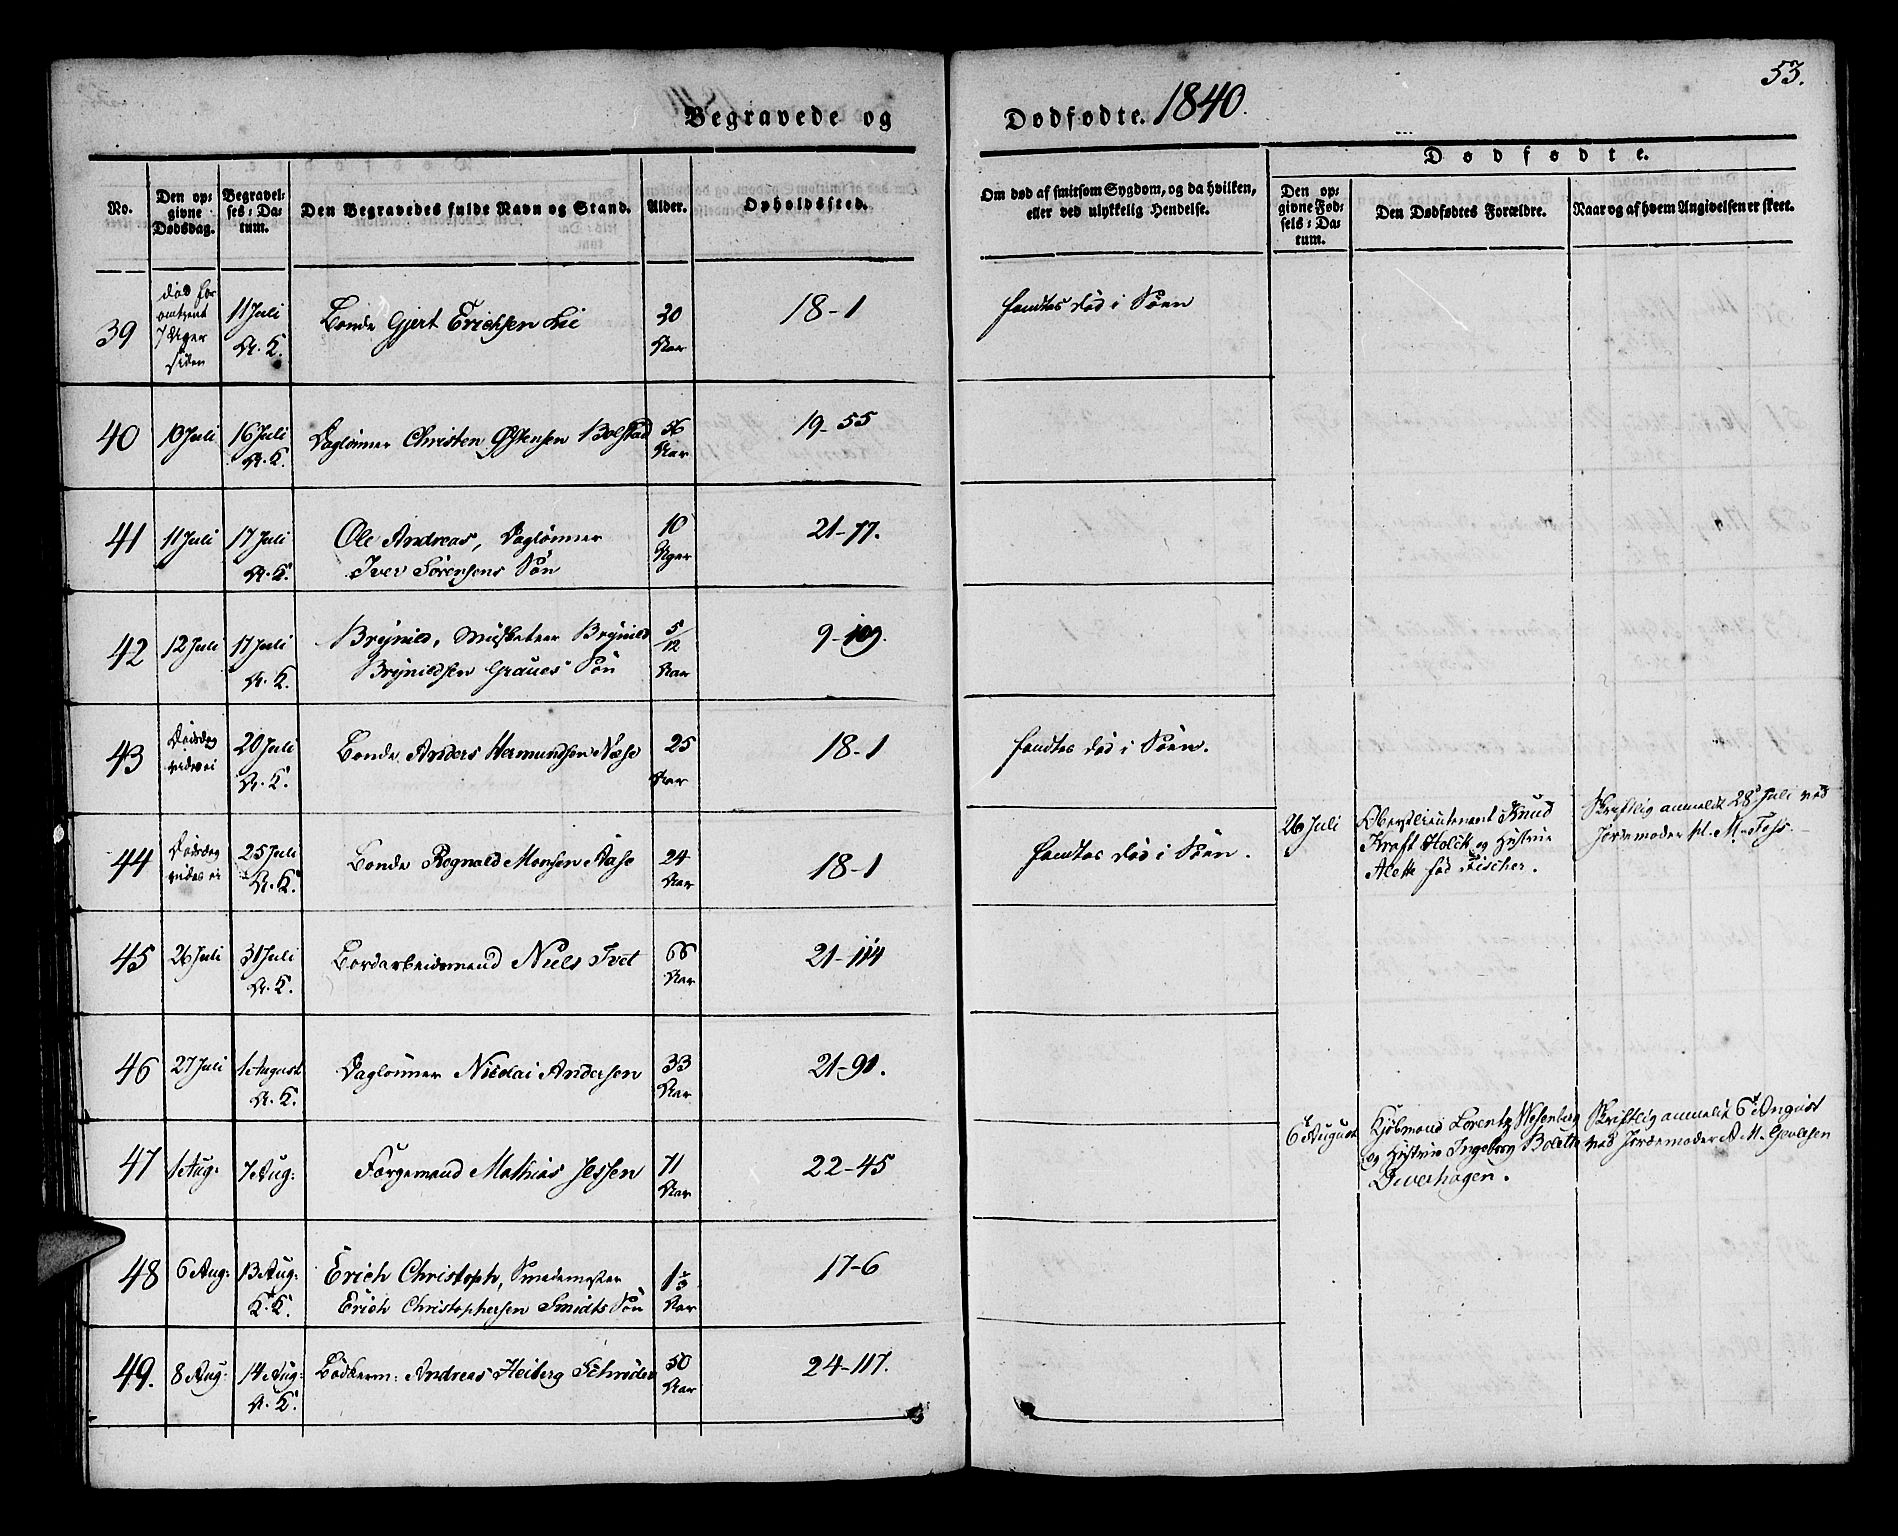 53.
Begravede og Dødfødte. 1840.
No.
Den opgivne Dødsdag.
Begravelses-Datum.
Den Begravedes fulde Navn og Stand.
Alder.
Opholdssted.
Om død af smitsom Sygdom, og da hvilken, eller ved ulykkelig Hendelse.
Dødfødte.
Den opgivne Fødsels-Datum.
Den Dødfødtes Forældre.
Naar og af hvem Angivelsen er skeet.
39 død for omtrent 7 Uger siden 11 Juli A. K. Bonde Gjert Erichsen Lie 30 Aar 18-1 fandtes død i Søen
40 10 Juli 16 Juli A. K. Daglønner Christen Østensen Bolstad 56 Aar 19-55
41 11 Juli 17 Juli A. K. Ole Andreas, Daglønner
Iver Sørensens Søn 10 Uger 21-77.
42 12 Juli 17 Juli A. K. Brynild, Musketeer Brynild
Brynildsen Graues Søn 5/12 Aar 9-109.
43 Dødsdag vides ei 20 Juli A. K. Bonde Anders Hermundsen Næse 25 Aar 18-1 fandtes død i Søen.
44 Dødsdag vides ei 25 Juli A. K. Bonde Rognald Monsen Aase 24 Aar 18-1 fandtes død i Søen.
26 Juli Oberstlieutenant Knud
Kraft Holck og Hustrue
Alette fød Fischer.
Skriftlig anmeldt 28d Juli ved
Jordemoder M. Fess.
45 26 Juli 31 Juli A. K. Bordarbeidsmand Niels Tvet 66 Aar 21-114
46 27 Juli 1 August A. K. Daglønner Nicolai Andersen 33 Aar 21-91.
6 August Kjøbmand Lorentz Wesenberg
og Hustrue Ingeborg Bolette
Dwerhagen.
Skriftlig anmeldt 6t August
ved Jordemoder A. M.
47 1 Aug: 7 Aug: Færgemand Mathias Jessen 71 Aar 22-45
48 6 Aug: 13 Aug: K. K. Erich Christoph, Smedemester
Erich Christophersen Smidts Søn Aar 17-6
49. 8 Aug: 14 Aug: A. K. Bødkerm: Andreas Heiberg Schrøder 50 Aar 24-117.